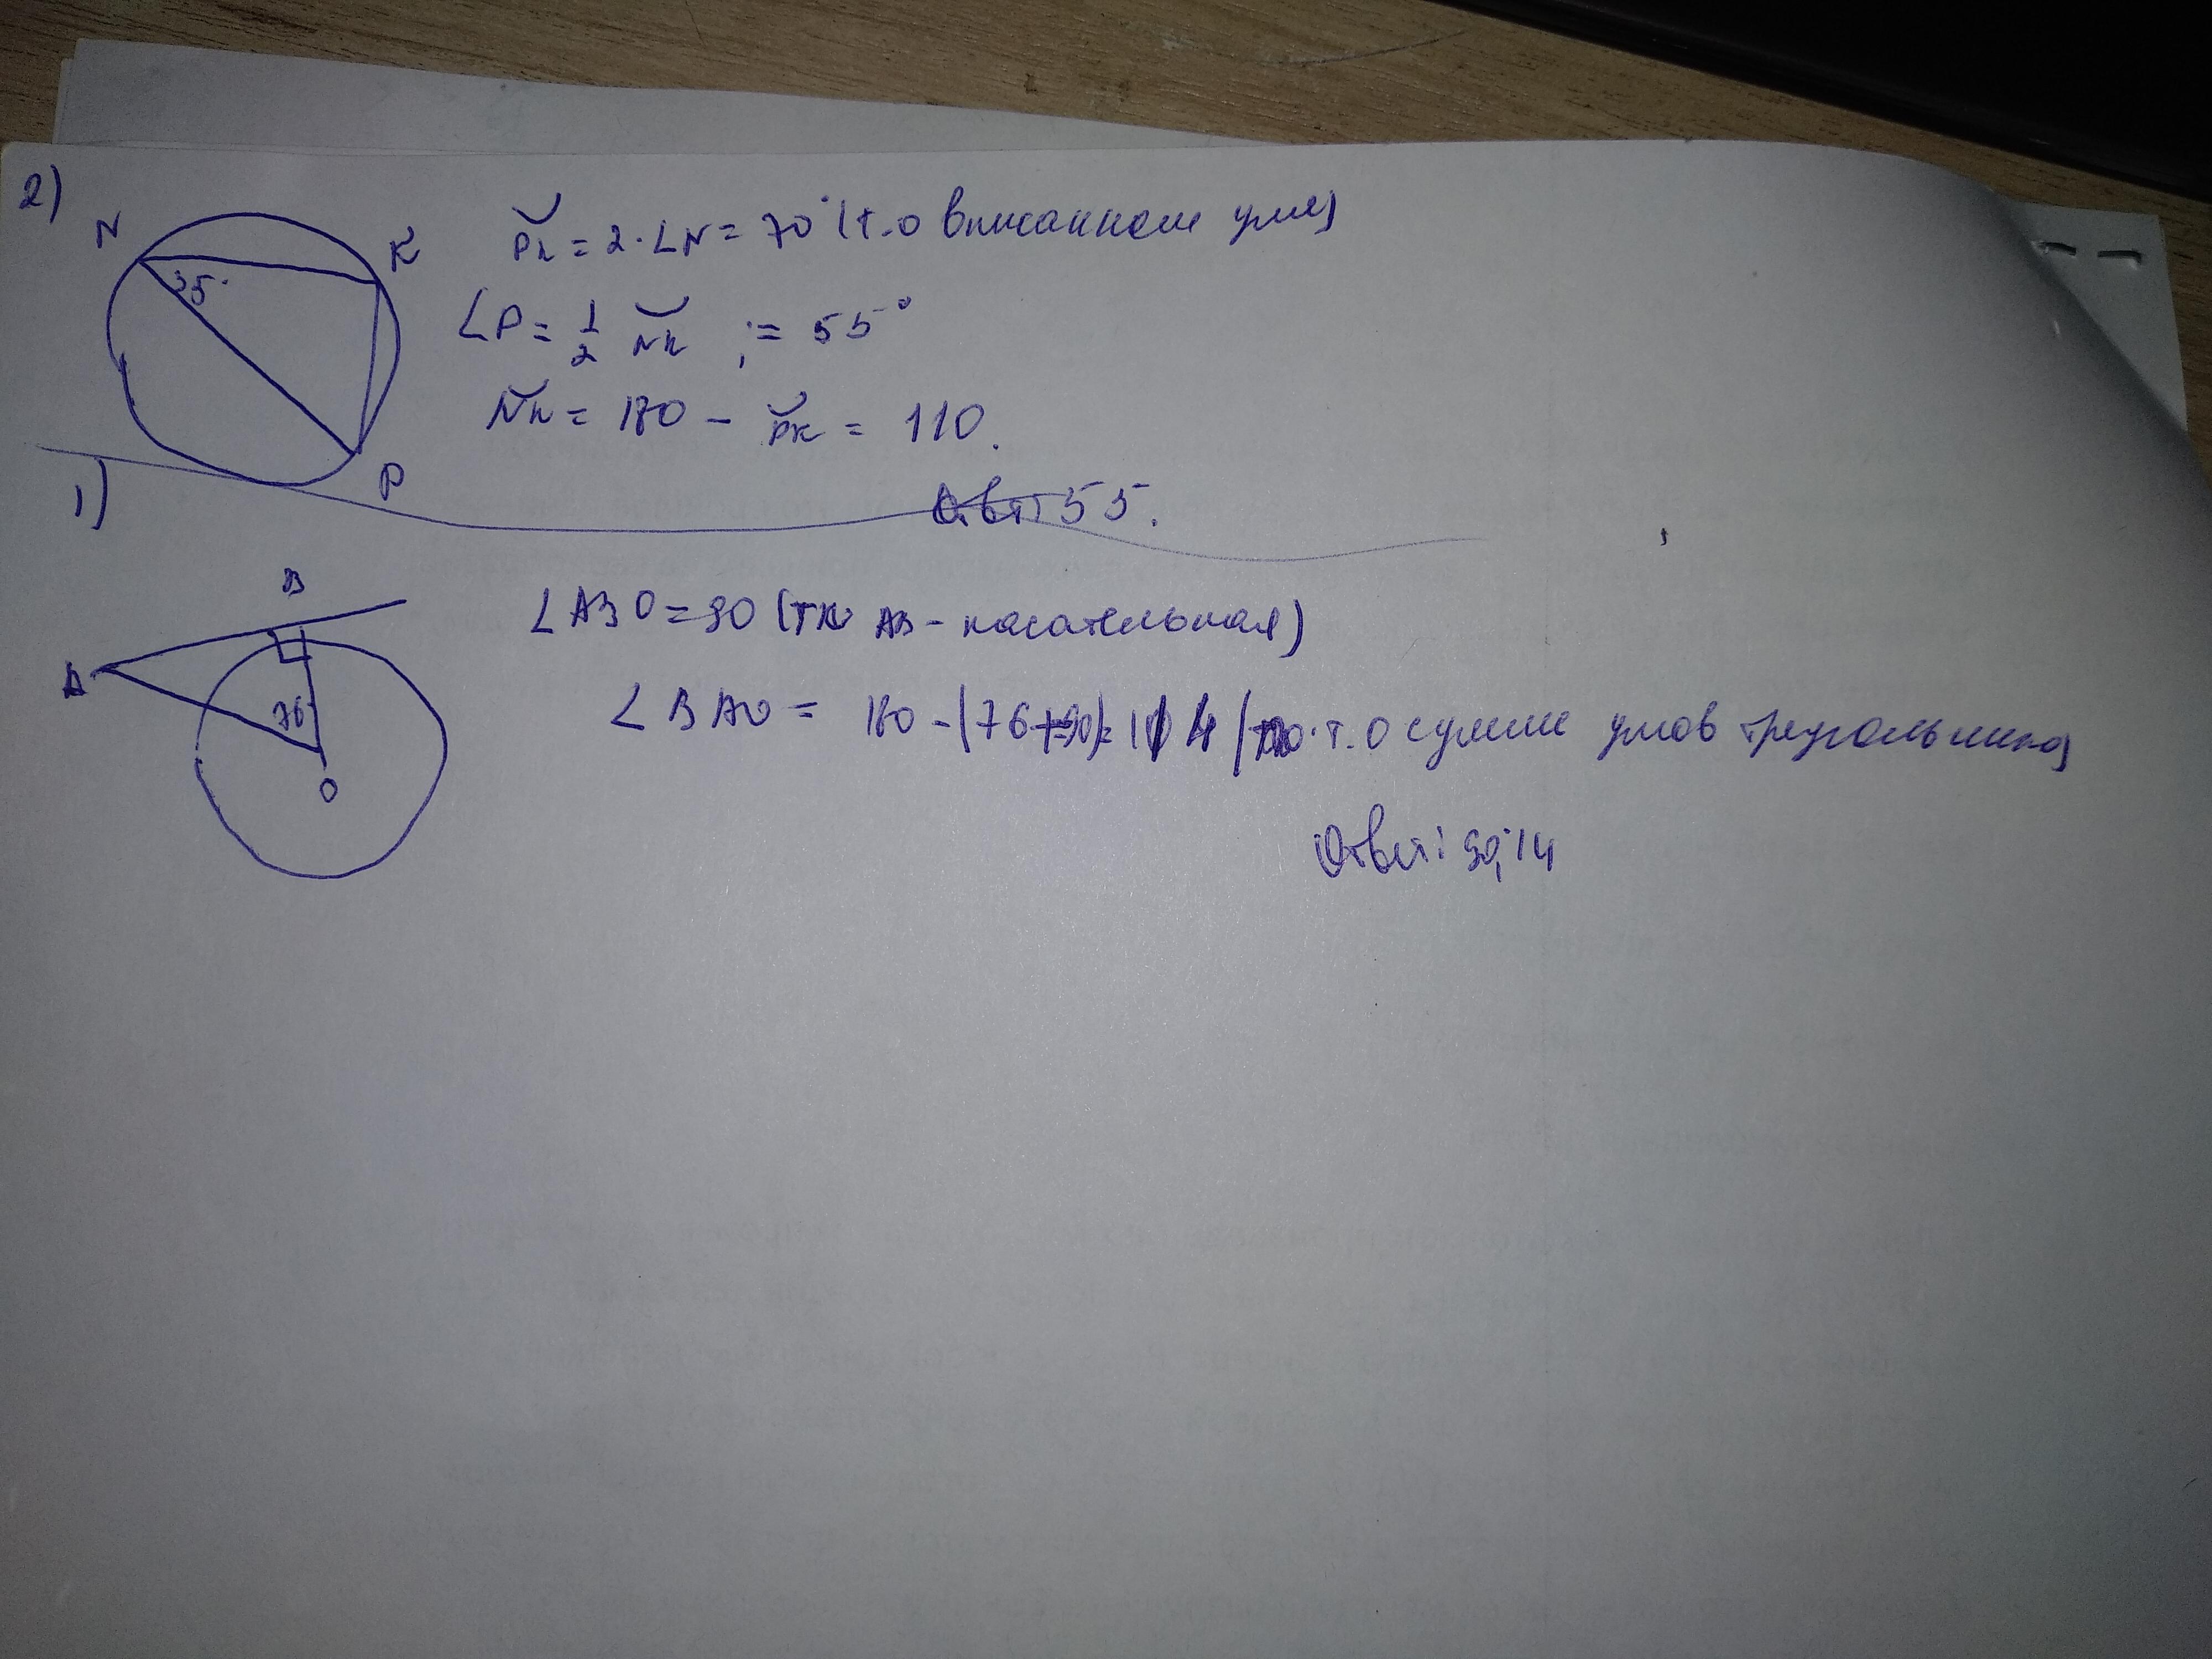 2)
N
K
35°
P
PK = 2·∠N = 70° (т.о вписанном угле)
∠P = 1/2 NK ; = 55°
NK = 180 - PK = 110.
Ответ: 55.
1)
B
A
76
O
∠ABO = 90 (тк AB - касательная)
∠BAO = 180 - (76+90) = 14 (т.о сумме углов треугольника)
Ответ: 90; 14